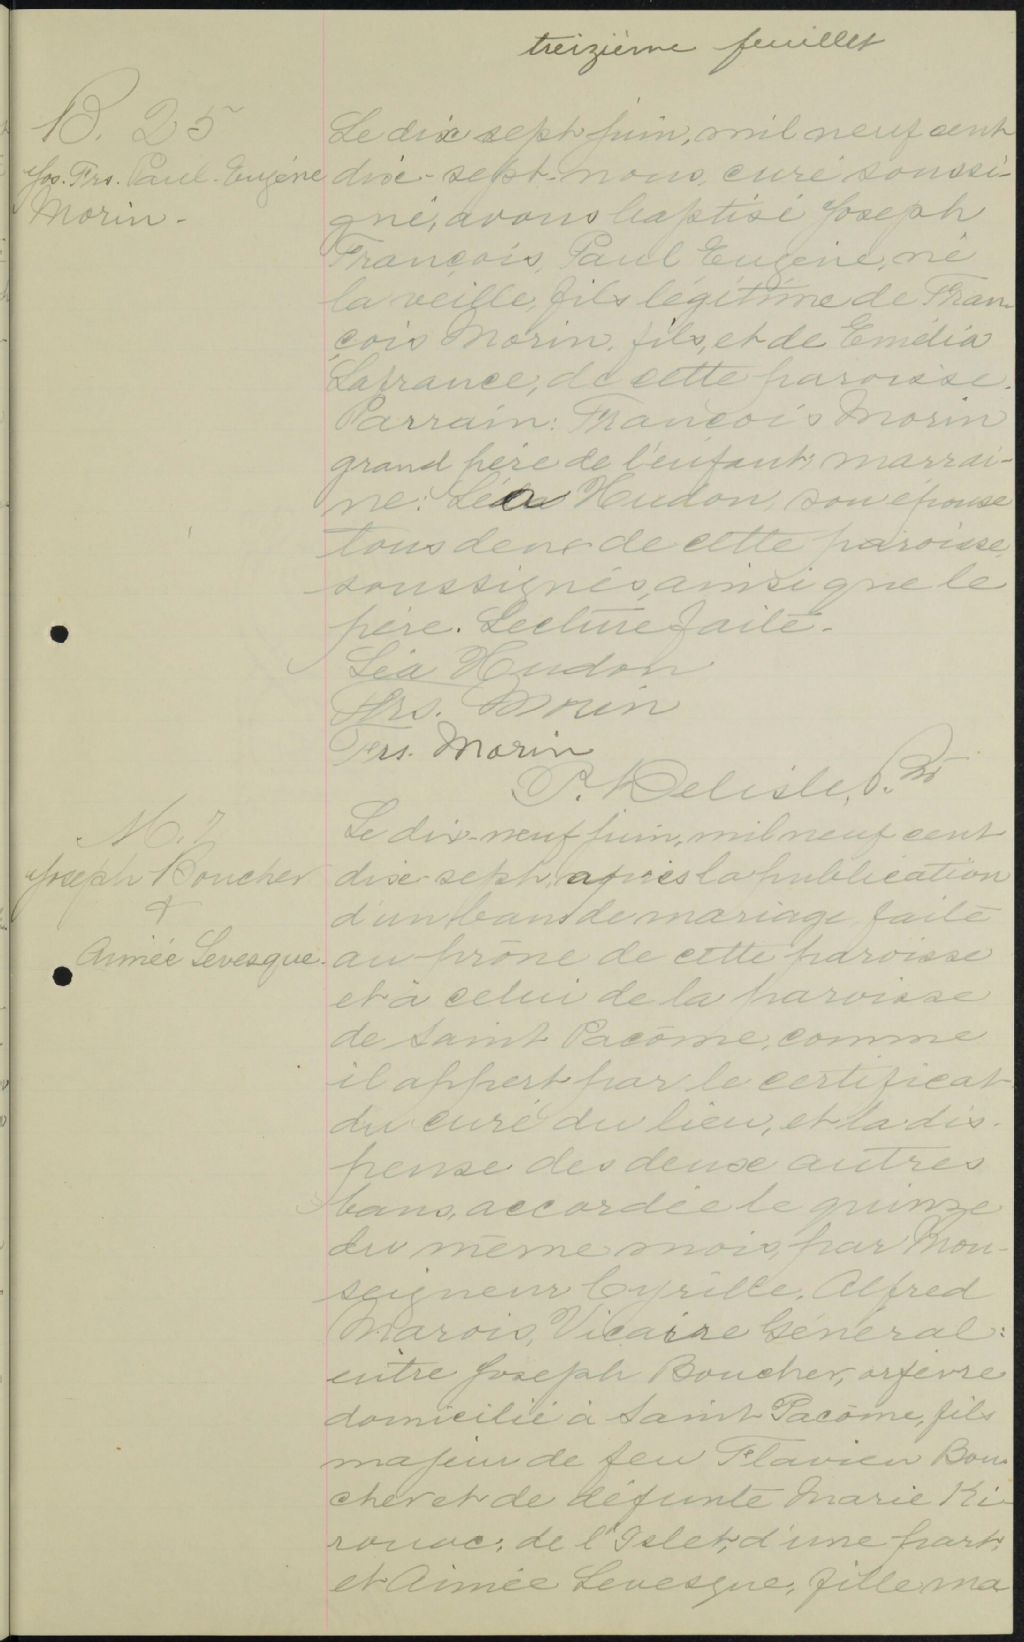 treizième feuillet
B. 25
Jos. Frs. Paul-Eugène
Morin -
Le dix sept juin, mil neuf cent
dix-sept, nous, curé soussi-
gné, avons baptisé Joseph
François, Paul Eugène, né
la veille, fils légitime de Fran-
çois Morin, fils, et de Emélia
Lafrance, de cette paroisse.
Parrain: François Morin
grand père de l'enfant; marrai-
ne: Léa Hudon, son épouse
tous deux de cette paroisse,
soussignés, ainsi que le
père. Lecture faite.
Léa Hudon
Frs. Morin
Frs. Morin
P. Delisle, Ptre
M. 7
Joseph Boucher
+
Aimée Levesque.
Le dix-neuf juin, mil neuf cent
dix sept, après la publication
d'un bans de mariage faite
au prône de cette paroisse
et à celui de la paroisse
de Saint Pacôme, comme
il appert par le certificat
du curé du lieu, et la dis-
pense des deux autres
bans, accordée le quinze
du même mois, par Mon-
seigneur Cyrille, Alfred
Marois, Vicaire Général:
entre Joseph Boucher, orfèvre
domicilié à Saint Pacôme, fils
majeur de feu Flavien Bou-
cher et de défunte Marie Ki-
rouac, de l'Islet, d'une part;
et Aimée Levesque, fille ma